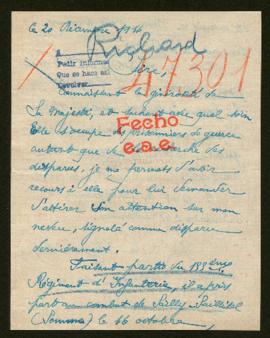 Le 20 Décembre 1914
Richard
A
Pedir informes
Que se hace así
Devolver
17301
Sire,
Connaissant la générosité de
Sa Majesté, et sachant avec quel soin
Elle s'occupe des prisonniers de guerre
autant que de recherche des
disparus, je me permets d'avoir
recours à elle pour lui demander
d'attirer son attention sur mon
neveu, signalé comme disparu
dernièrement.
Fecho
e.a.e.
Faisant partie du
Régiment d'Infanterie, il a pris
part au combat de Sailly-Saillisel
(Somme) le 16 octobre